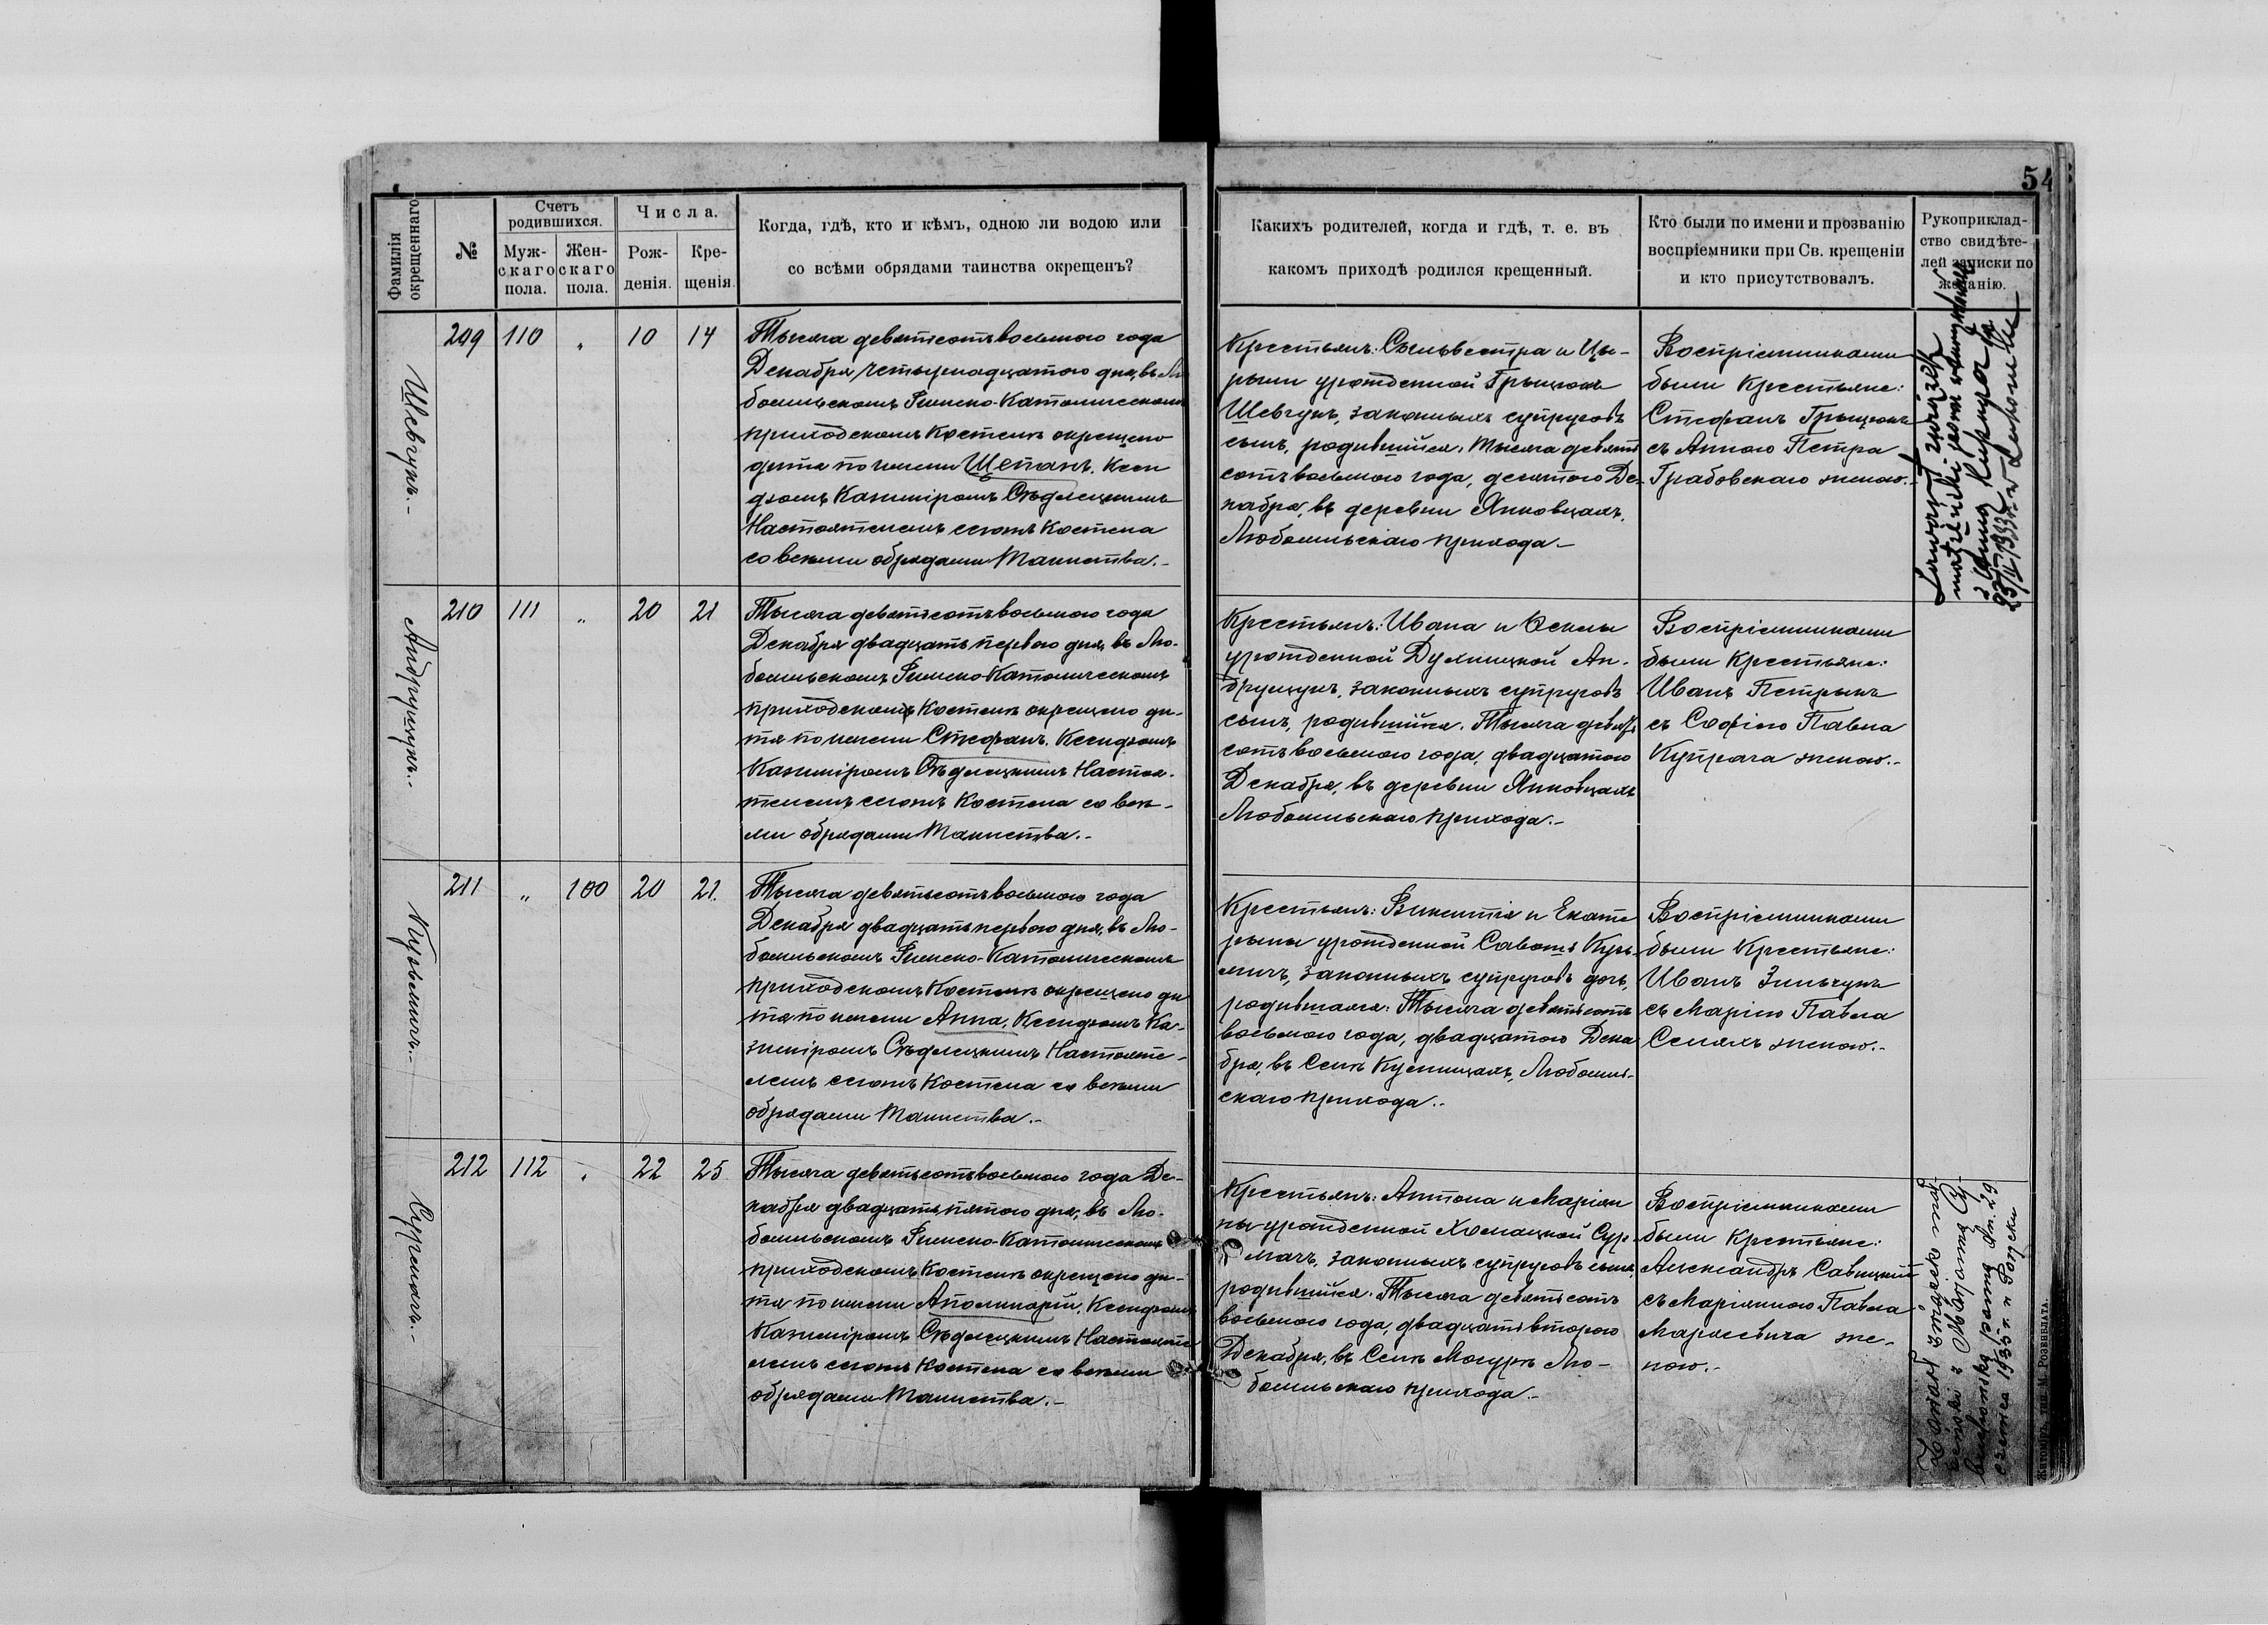 54
Фамилія
окрещеннаго
№
Счетъ
родившихся.
Муж-
скаго
пола.
Жен-
скаго
пола.
Числа.
Рож-
денія.
Кре-
щенія.
Когда, гдѣ, кто и кѣмъ, одною ли водою или
со всѣми обрядами таинства окрещенъ?
Какихъ родителей, когда и гдѣ, т. е. въ
какомъ приходѣ родился крещенный.
Кто были по имени и прозванію
воспріемники при Св. крещеніи
и кто присутствовалъ.
Рукоприклад-
ство свидѣте-
лей записки по
желанію.
Шевчукъ.-
209 110 " 10 14
Тысяча девятьсотъ восьмого года
Декабря четырнадцатого дня, въ Лю
бомльскомъ Римско-Католическомъ
приходскомъ Костелѣ окрещено
дитя по имени Щепанъ. Ксен
дзомъ Казимиромъ Сѣдлецкимъ
Настоятелемъ сегожъ Костела
со всѣми обрядами Таинства.-
Крестьянъ: Сильвестра и
урожденной Грыцюкъ
Шевчукъ, законныхъ супруговъ
сынъ, родившійся, Тысяча девять
сотъ восьмого года, десятого Де-
кабря, въ деревни Янковцахъ,
Любомльскаго прихода.-
Воспріемниками
были Крестьяне:
Стефанъ Грыцюкъ
съ Анною Петра
Грабовскаго женою.-
Zawarł związek
małżeński
z Anną
Андрущукъ.-
210 111 " 20 21
Тысяча девятьсотъ восьмого года
Декабря двадцать перваго дня, въ Лю-
бомльскомъ Римско-Католическомъ
приходскомъ Костелѣ окрещено ди-
тя по имени Стефанъ. Ксендзомъ
Казимиромъ Сѣдлецкимъ Настоя-
телемъ сегожъ Костела со всѣ-
ми обрядами Таинства.-
Крестьянъ: Ивана и Ѳеклы
урожденной Ан-
друщукъ, законныхъ супруговъ
сынъ, родившійся, Тысяча девять
сотъ восьмого года, двадцатого
Декабря, въ деревни Янковцахъ
Любомльскаго прихода.-
Воспріемниками
были Крестьяне:
Иванъ Петрыкъ
съ Софіею Павла
Купрача женою.-
Кузьмичъ.-
211 " 100 20 21.
Тысяча девятьсотъ восьмого года
Декабря двадцать перваго дня, въ Лю-
бомльскомъ Римско-Католическомъ
приходскомъ Костелѣ окрещено ди
тя по имени Анна, Ксендзомъ Ка-
зимиромъ Сѣдлецкимъ Настояте-
лемъ сегожъ Костела со всѣми
обрядами Таинства.-
Крестьянъ: Викентія и Екате
рыны урожденной Кузь-
мичъ, законныхъ супруговъ дочь,
родившаяся: Тысяча девятьсотъ
восьмого года, двадцатого Дека
бря, въ Селѣ Кусницахъ, Любомль-
скаго прихода.-
Воспріемниками
были Крестьяне:
Иванъ Зинчукъ
съ Маріею Павла
женою.-
Сурмачъ.-
212 112 " 22 25
Тысяча девятьсотъ восьмого года Де-
кабря двадцать пятого дня, въ Лю-
бомльскомъ Римско-Католическомъ
приходскомъ Костелѣ окрещено ди-
тя по имени Аполинарій, Ксендзомъ
Казимиромъ Сѣдлецкимъ Настояте
лемъ сегожъ Костела со всѣми
обрядами Таинства.-
Крестьянъ: Антона и Маріан
ны урожденной Хомацкой Сур-
мачъ, законныхъ супруговъ сынъ,
родившійся: Тысяча девятьсотъ
восьмого года, двадцать второго
Декабря, въ Селѣ Мосурѣ Лю-
бомльскаго прихода.-
Воспріемниками
были Крестьяне:
Александръ Савицкій
съ Маріянною Павла
же-
ною.-
Zawarł związek mał-
żeński z
panną dn. 29
czerwca 1935 r.
Житоміръ, тип. М. Розенблата.